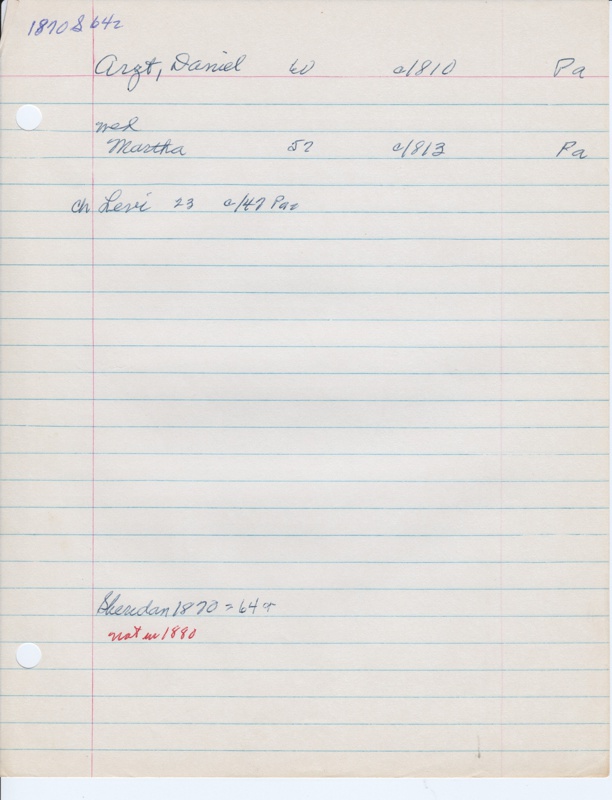 1870 S 642
Arzt, Daniel 60 c/1810 Pa
wed
Martha 57 c/1813 Pa
ch Levi 23 c/47 Pa
Sheridan 1870 = 64
not in 1880